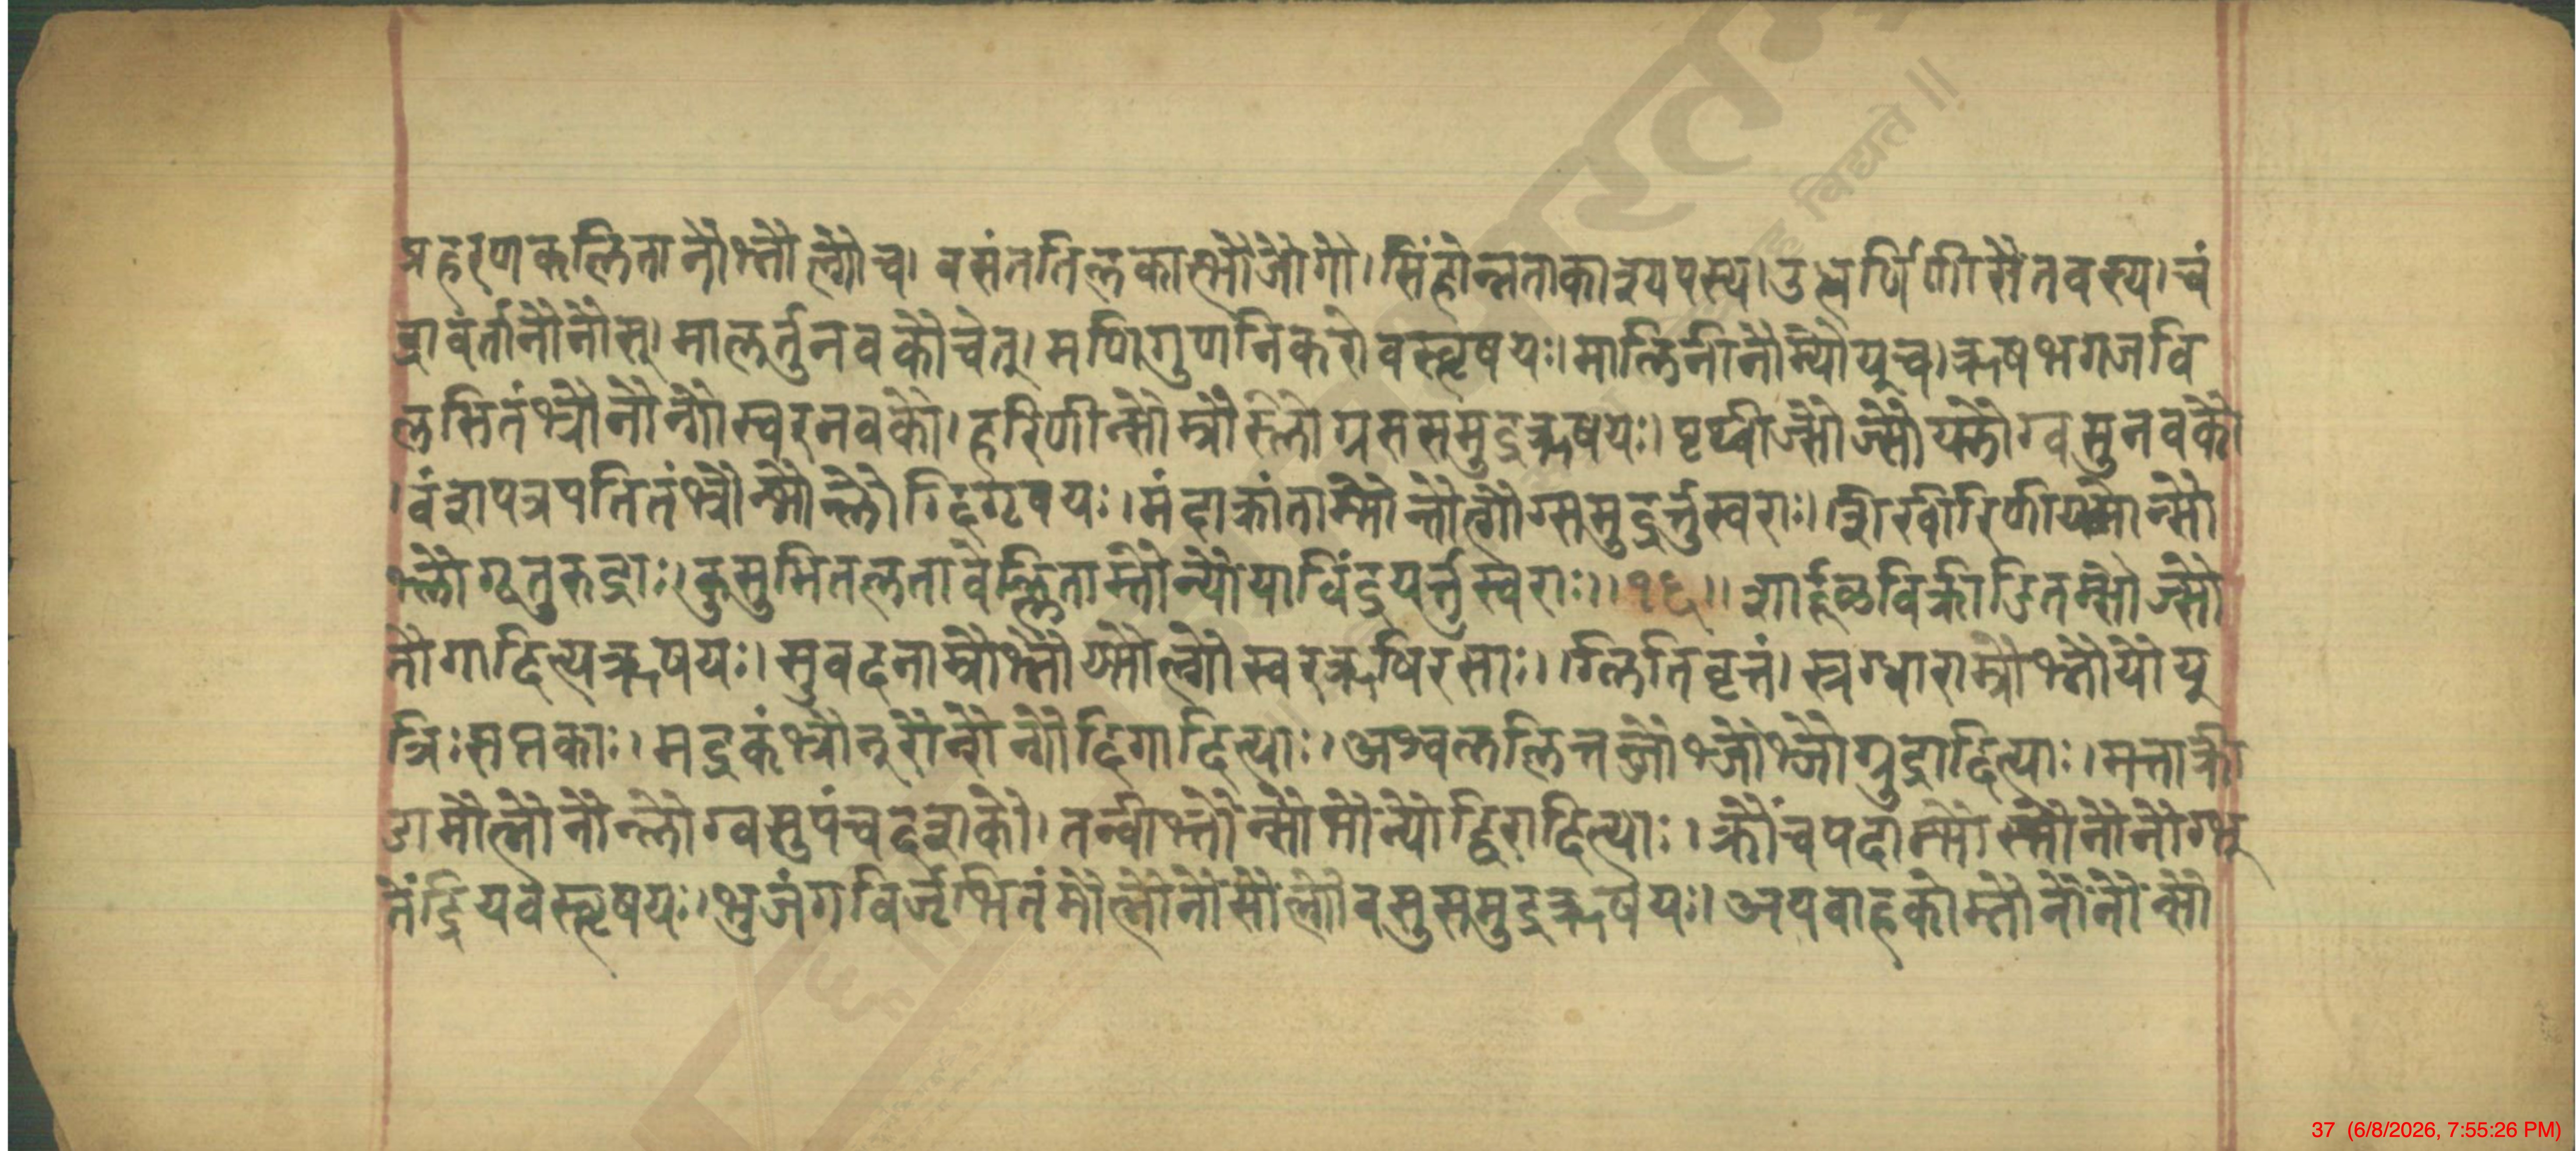 प्रहरणकलिता नौभ्नौ ल्गौ च। वसंततिलकात्भौजौगौ। सिंहोन्नताकाश्यपस्य। उद्धर्षिणी सैतवस्य। चं
द्रावर्तानौनौस्। मालर्तुनवकौचेत्। मणिगुणनिकरोवस्वृषयः। मालिनीनौम्यौय्च। ऋषभगजवि
लसितंभ्रौनौन्गौस्वरनवकौ। हरिणीन्सौम्रौस्लौग्रससमुद्रऋषयः। पृथ्वीज्सौज्सौय्लौग्वसुनवकौ
। वंशपत्रपतितंभ्रौन्भौन्लौग्दिगृषयः। मंदाक्रांताम्भौन्तौत्गौग्समुद्रर्त्तुस्वराः। शिखरिणीय्मौन्सौ
भ्लौगृतुरुद्राः। कुसुमितलतावेल्लिताम्तौन्यौयाविंद्रियर्त्तुस्वराः।। १६।। शार्दूलविक्रीडितम्सौज्सौ
तौगादित्यऋषयः। सुवदनाम्रौभ्नौय्भौल्गौस्वरऋषिरसाः। ग्लितिवृत्तं। स्त्रग्धाराम्रौभ्नौयौय्
त्रिःसप्तकाः। मद्रकंभ्रौन्रौन्रौन्गौदिगादित्याः। अश्वललितन्जौभ्जौभ्जौभ्लौग्रुद्रादित्याः। मत्ताक्री
डामौत्नौनौन्लौग्वसुपंचदशकौ। तन्वीभ्तौन्सौभौन्यौद्विरादित्याः। क्रौंचपदाभ्मौस्भौनौनौग्भू
तेंद्रियवस्वृषयः। भुजंगविजृंभितंमौत्नौनौर्सौल्गौवसुसमुद्रऋषयः। अपवाहकोम्नौनौनौन्सौ
विद्यते ॥
37 (6/8/2026, 7:55:26 PM)